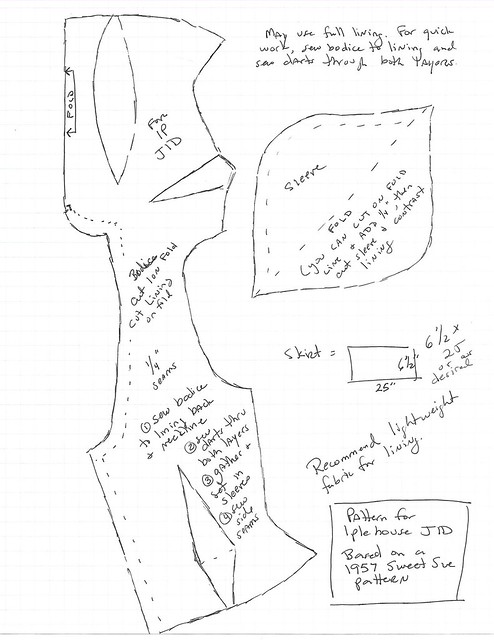 May use full lining. For quick
work, sew bodice to lining and
sew darts through both layers.
FOLD
For
IP
JID
Sleeve
FOLD
(you can cut on fold
line & ADD 1/4", then
cut sleeve & contrast
lining
Bodice
cut 1 on fold
cut lining
on fold
1/4"
seams
① Sew bodice
to lining back
& neckline
② Sew
darts thru
both layers
③ gather &
set in
sleeves
④ Sew
side
seams
Skirt =
6 1/2"
25"
6 1/2 x
25
or as
desired
Recommend lightweight
fabric for lining.
Pattern for
Iplehouse JID
Based on a
1957 Sweet Sue
pattern